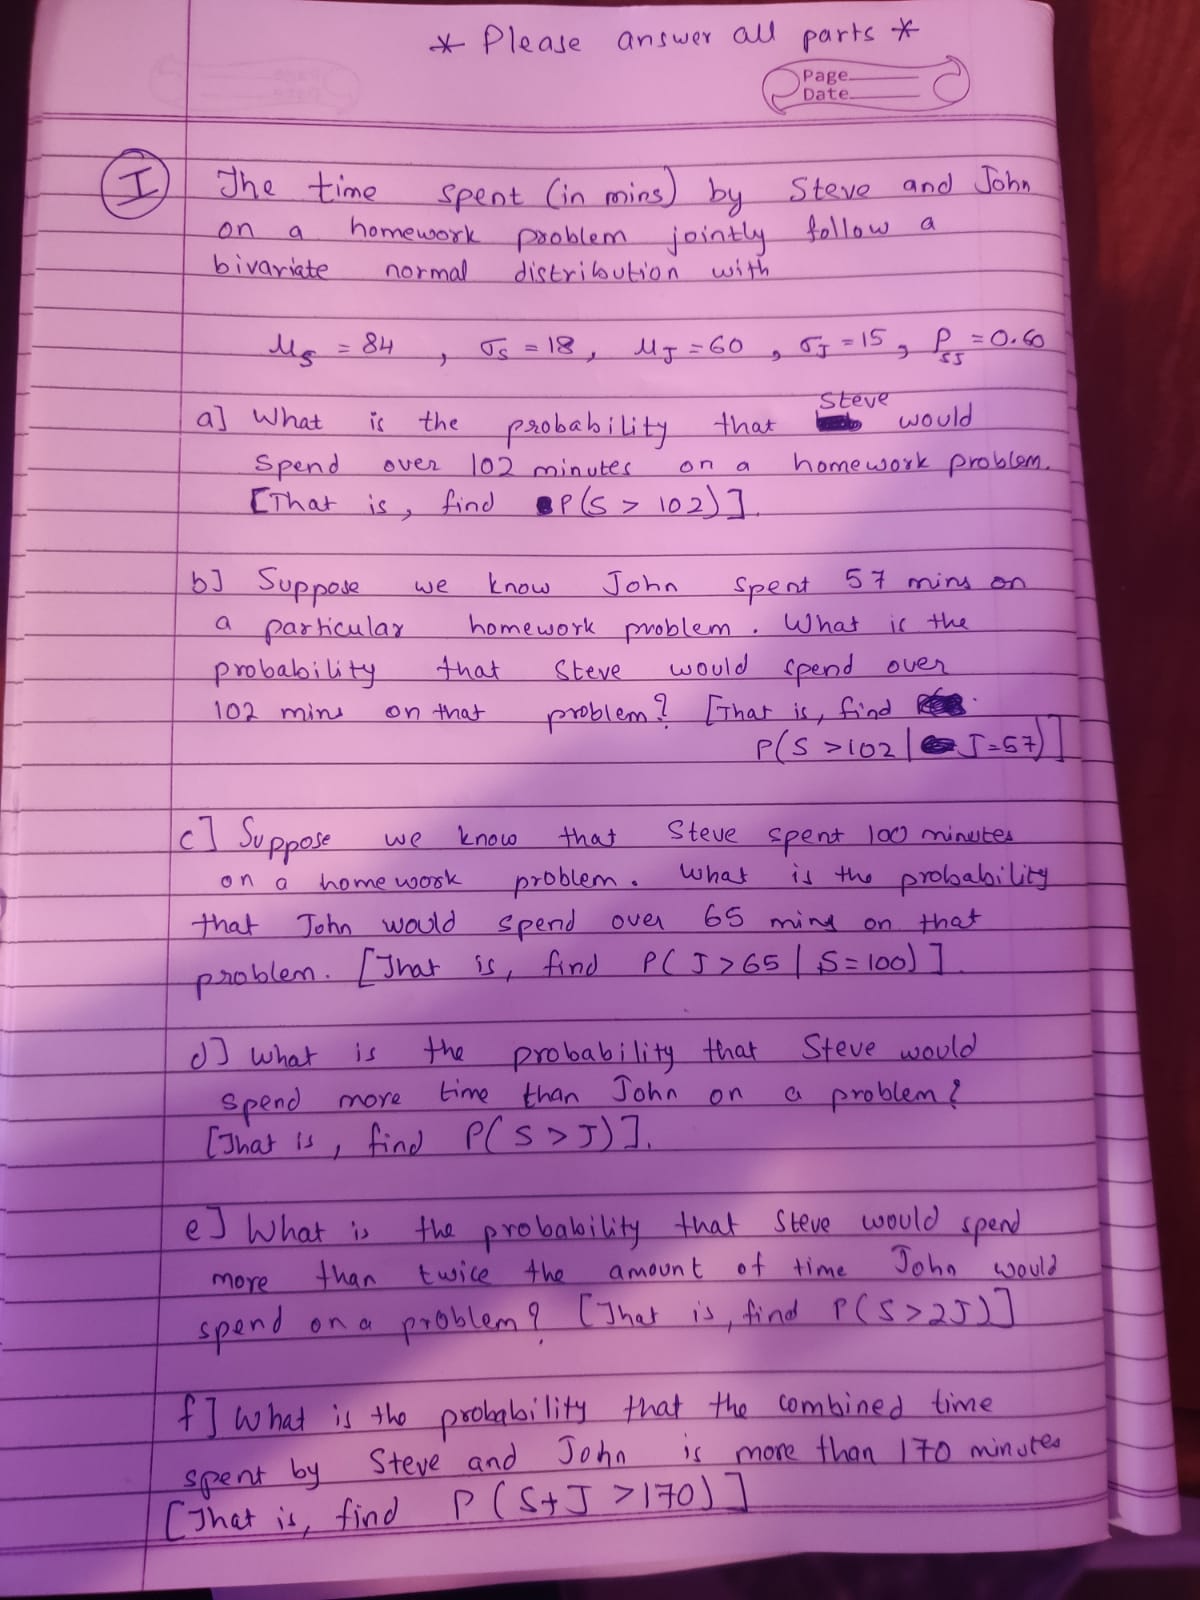 * Please answer all parts *
Page
Date
I
The time spent (in mins) by Steve and John
on a homework problem jointly follow a
bivariate normal distribution with
μ_S = 84, σ_S = 18, μ_J = 60, σ_J = 15, ρ_SJ = 0.60
a] What is the probability that Steve would
spend over 102 minutes on a homework problem.
[That is, find P(S > 102)].
b] Suppose we know John spent 57 mins on
a particular homework problem. What is the
probability that Steve would spend over
102 mins on that problem? [That is, find
P(S > 102 | J = 57)]
c] Suppose we know that Steve spent 100 minutes
on a homework problem. What is the probability
that John would spend over 65 mins on that
problem. [That is, find P(J > 65 | S = 100)].
d] What is the probability that Steve would
spend more time than John on a problem?
[That is, find P(S > J)].
e] What is the probability that Steve would spend
more than twice the amount of time John would
spend on a problem? [That is, find P(S > 2J)]
f] What is the probability that the combined time
spent by Steve and John is more than 170 minutes
[That is, find P(S + J > 170)]